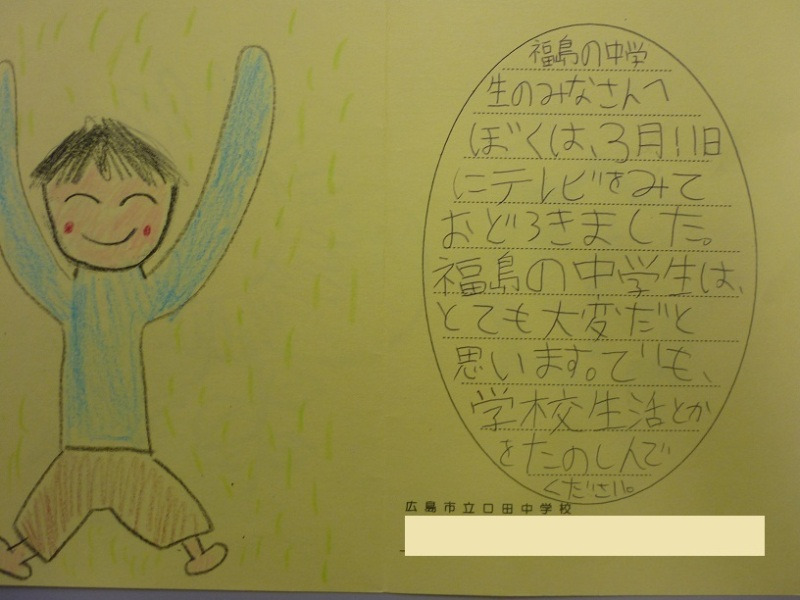 福島の中学
生のみなさんへ
ぼくは、3月11日
にテレビをみて
おどろきました。
福島の中学生は、
とても大変だと
思います。でも、
学校生活とか
をたのしんで
ください。
広島市立口田中学校